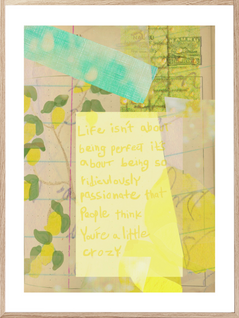 Life isn't about
being perfect it's
about being so
ridiculously
passionate that
People think
You're a little
crazy